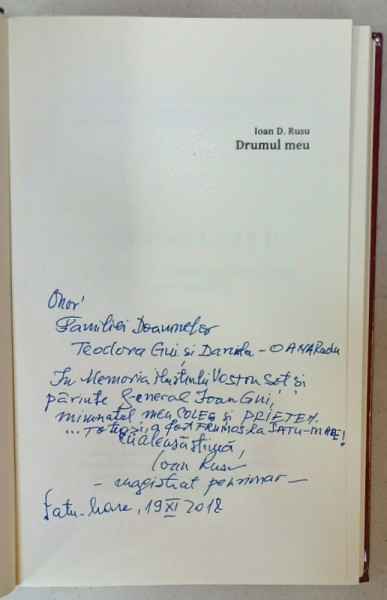 Ioan D. Rusu
Drumul meu
Onor'
Familiei Doamnelor
Teodora Gui și Daniela - OANA Radu
În Memoria ilustrului Vostru Soț și
părinte General Ioan Gui,
minunatul meu COLEG și PRIETEN.
... Totuși, a fost FRUMOS la SATU-MARE!
Cu aleasă stimă,
Ioan Rusu
- magistrat pensionar -
Satu-Mare, 19 XI 2012